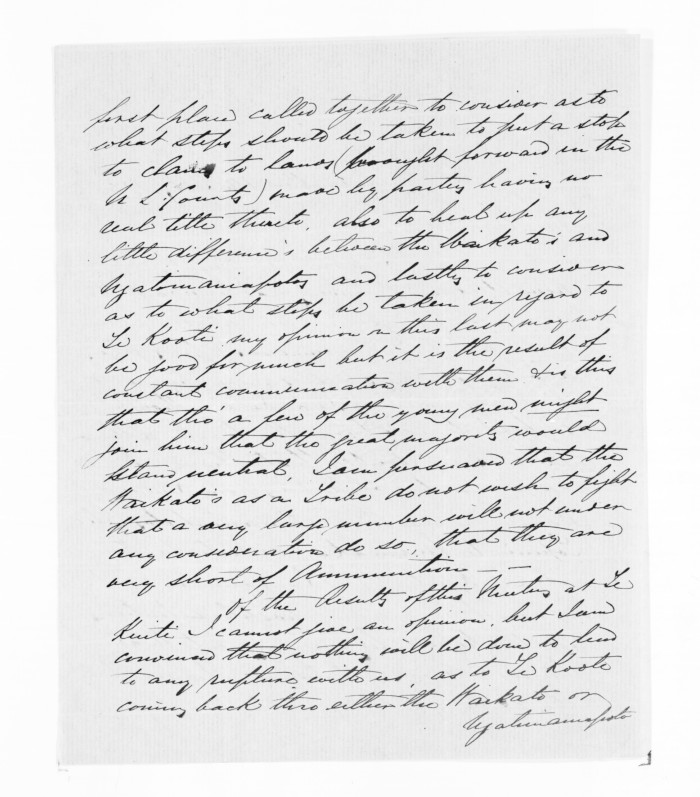 first place called together to consider as to
what steps should be taken to put a stop
to claims to lands (brought forward in the
N L: Courts) made by parties having no
real title thereto, also to heal up any
little difference's between the Waikato's and
Ngatimaniapotos and lastly to consider
as to what steps be taken in regard to
Te Kooti my opinion on this last may not
be good for much but it is the result of
constant communication with them & is this
that tho' a few of the young men might
join him that the great majority would
stand neutral, I am persuaded that the
Waikato's as a Tribe do not wish to fight
that a very large number will not under
any consideration do so, that they are
very short of Ammunition — —
Of the Results of this Meeting at Te
Kuiti I cannot give an opinion, but I am
convinced that nothing will be done to lead
to any rupture with us, as to Te Kooti
coming back thro either the Waikato or
Ngatimaniapoto